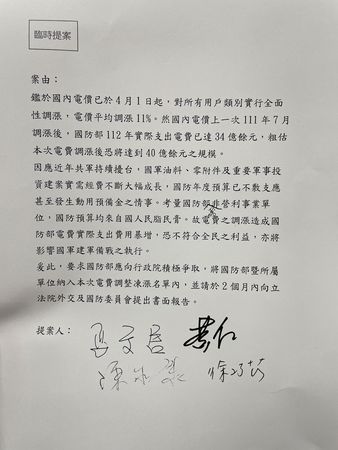 臨時提案
案由：
鑑於國內電價已於4月1日起，對所有用戶類別實行全面
性調漲，電價平均調漲11%。然國內電價上一次111年7月
調漲後，國防部112年實際支出電費已達34億餘元，粗估
本次電費調漲後恐將達到40億餘元之規模。
因應近年共軍持續擾台，國軍油料、零附件及重要軍事投
資建案實需經費不斷大幅成長，國防年度預算已不敷支應
甚至發生動用預備金之情事。考量國防部非營利事業單
位，國防預算均來自國人民脂民膏。故電費之調漲造成國
防部電費實際支出費用暴增，恐不符合全民之利益，亦將
影響國軍建軍備戰之執行。
爰此，要求國防部應向行政院積極爭取，將國防部暨所屬
單位納入本次電費調整凍漲名單內，並請於2個月內向立
法院外交及國防委員會提出書面報告。
提案人：
馬文君
徐巧芯